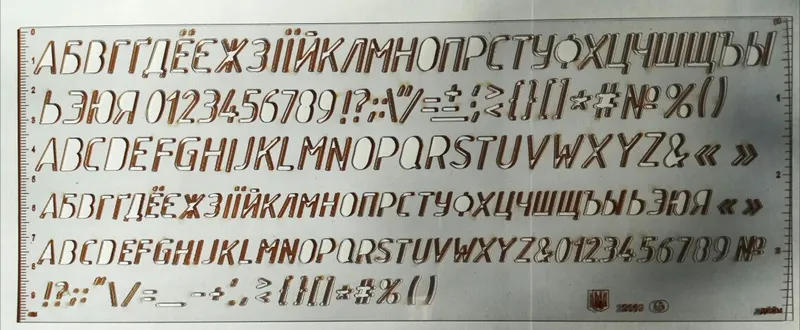 АБВГҐДЁЕЄЖЗІЇЙКЛМНОПРСТУФХЦЧШЩЪЫ
ЬЭЮЯ 0123456789!?;:\"/=÷±,;≥{}[]*#№%()
ABCDEFGHIJKLMNOPQRSTUVWXYZ&«»
АБВГҐДЁЕЄЖЗІЇЙКЛМНОПРСТУФХЦЧШЩЪЫЬЭЮЯ«»
ABCDEFGHIJKLMNOPQRSTUVWXYZ&0123456789№
!?;:"\/=_-+;,≥{}[]*#%()